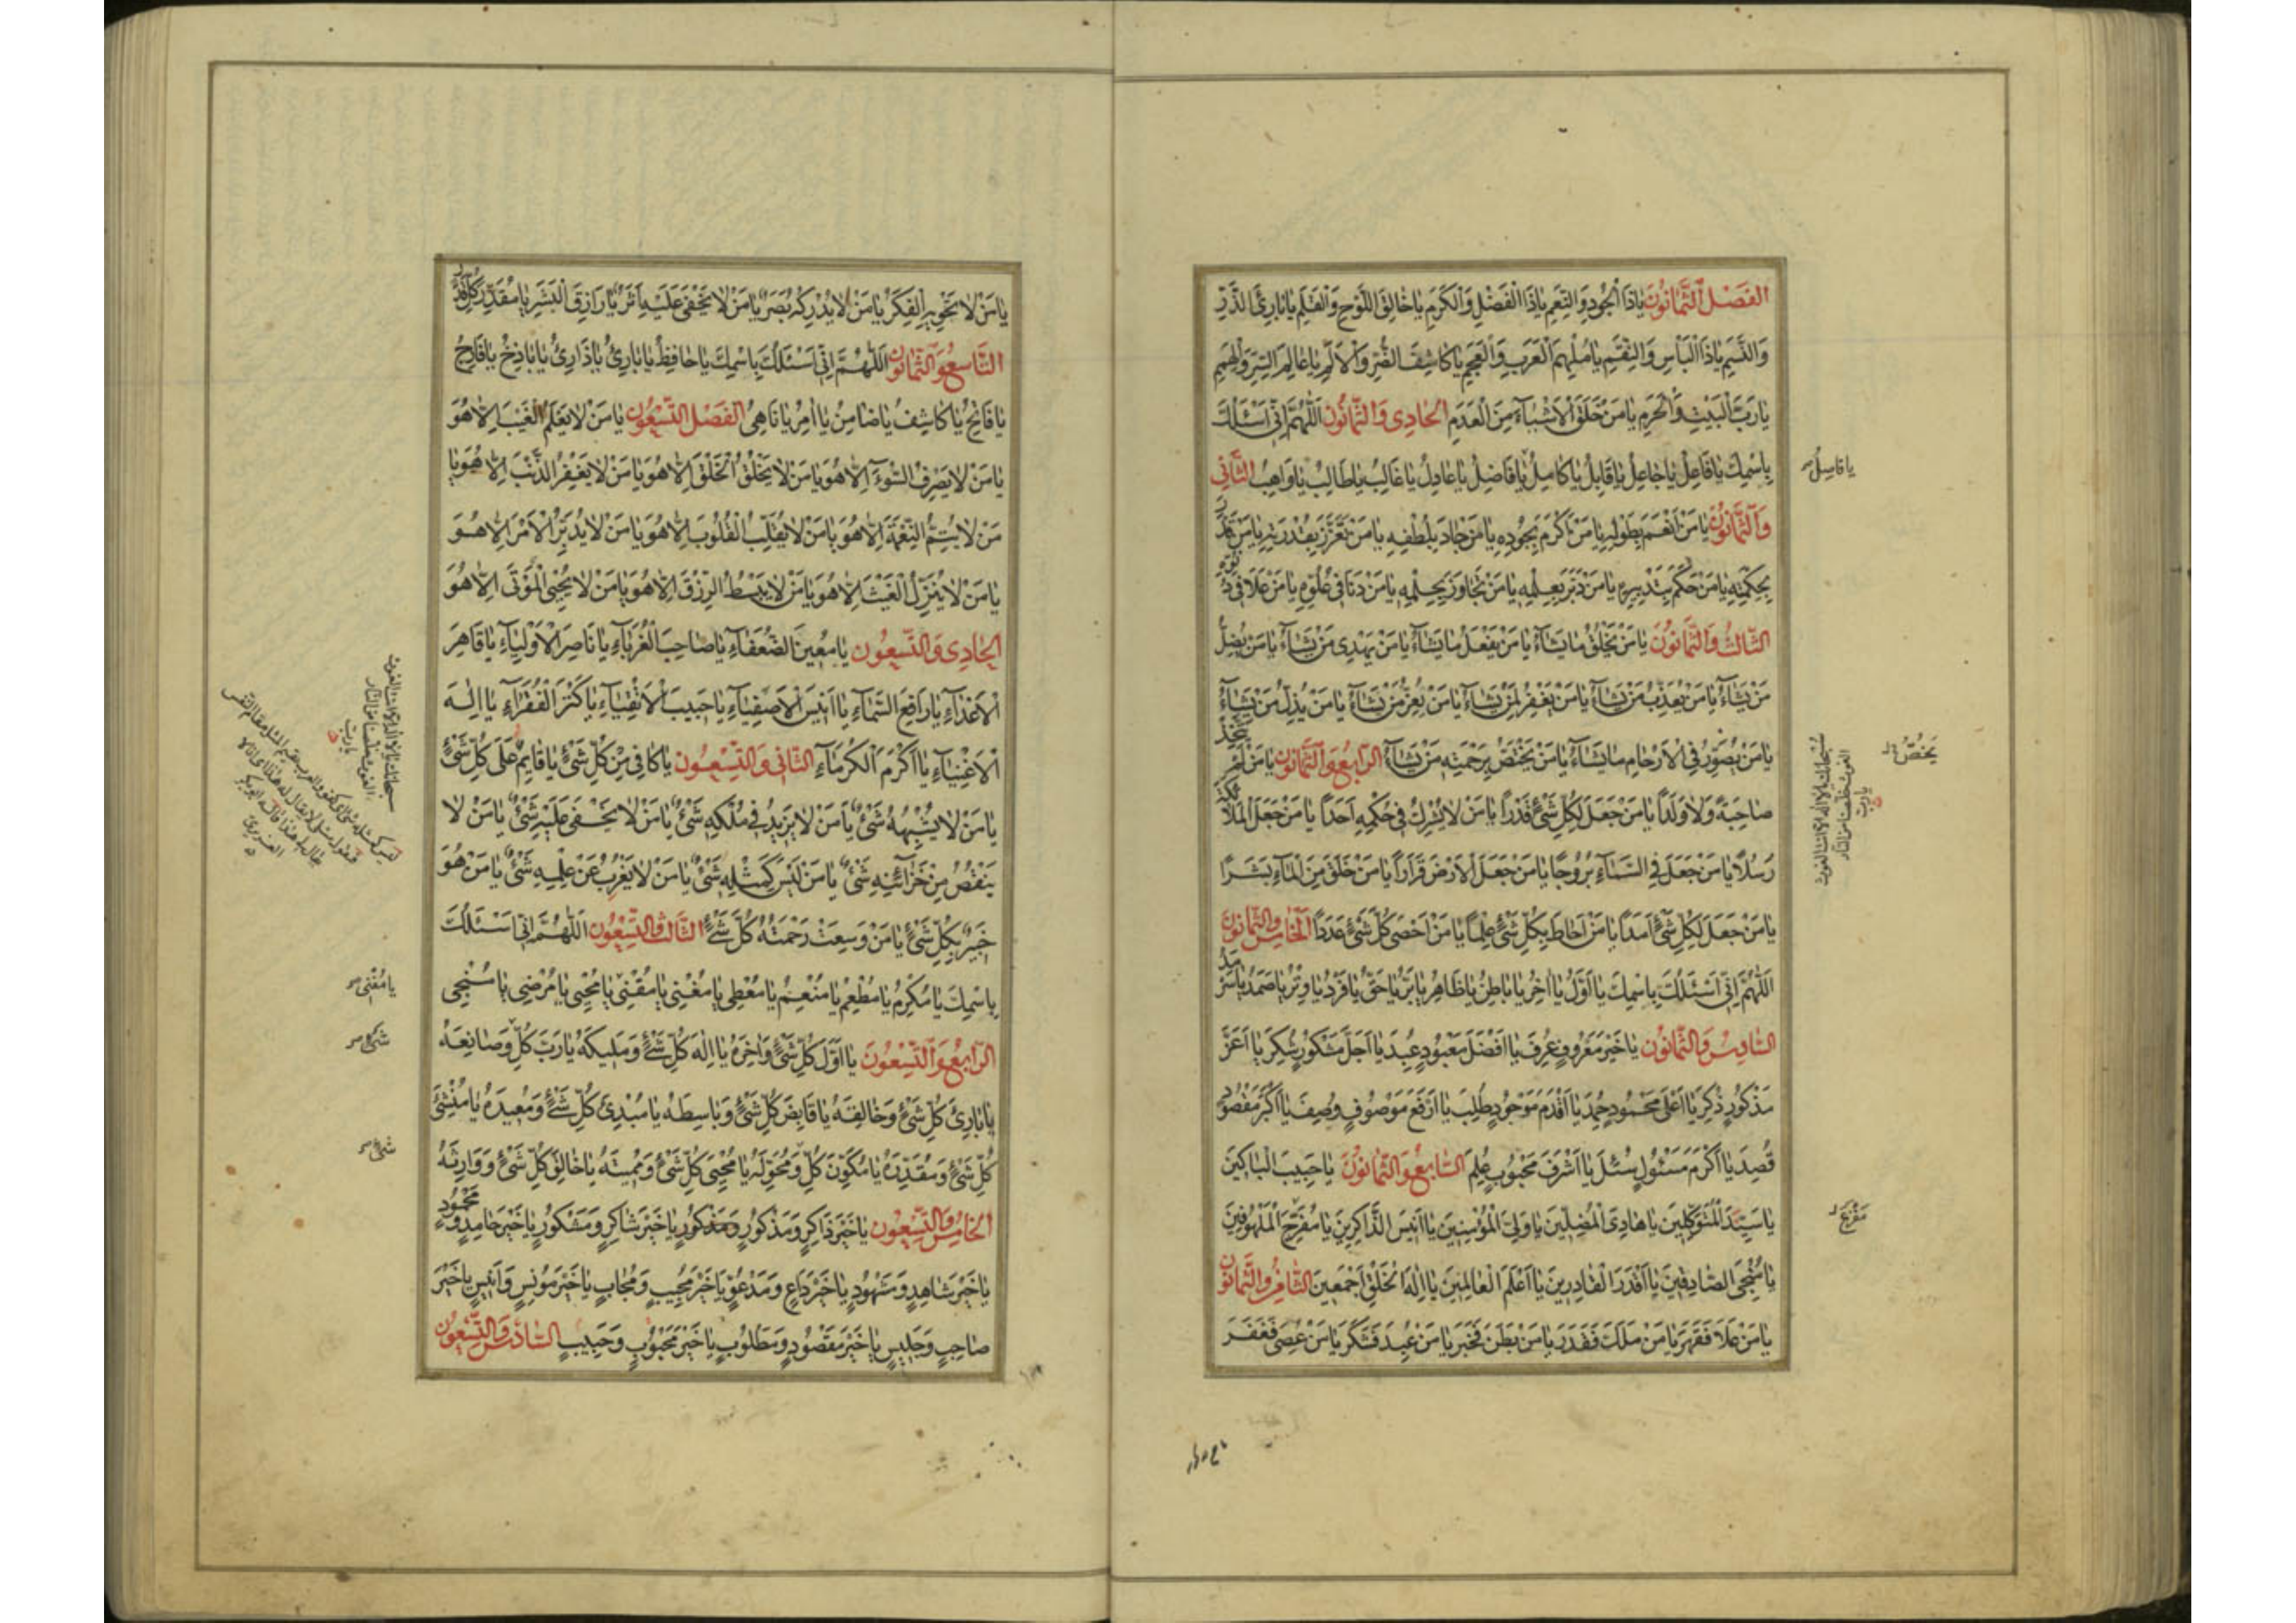 الفَصْلُ الثَّمَانُونَ يَاذَا الْجُودِ وَالنِّعَمِ يَاذَا الْفَضْلِ وَالْكَرَمِ يَاخَالِقَ اللَّوْحِ وَالْقَلَمِ يَابَارِئَ الذَّرِّ
وَالنَّسَمِ يَاذَا الْبَأْسِ وَالنِّقَمِ يَامُلْهِمَ الْعَرَبِ وَالْعَجَمِ يَاكَاشِفَ الضُّرِّ وَالْأَلَمِ يَاعَالِمَ السِّرِّ وَالْهِمَمِ
يَارَبَّ الْبَيْتِ وَالْحَرَمِ يَامَنْ خَلَقَ الْأَشْيَاءَ مِنَ الْعَدَمِ الحَادِى وَالثَّمَانُونَ اَللّٰهُمَّ اِنِّى اَسْئَلُكَ
بِاسْمِكَ يَافَاعِلُ يَاجَاعِلُ يَاقَابِلُ يَاكَامِلُ يَافَاضِلُ يَاعَادِلُ يَاغَالِبُ يَاطَالِبُ يَاوَاهِبُ الثَّانِى
وَالثَّمَانُونَ يَامَنْ اَنْعَمَ بِطَوْلِهِ يَامَنْ اَكْرَمَ بِجُودِهِ يَامَنْ جَادَ بِلُطْفِهِ يَامَنْ تَعَزَّزَ بِقُدْرَتِهِ يَامَنْ قَدَّرَ
بِحِكْمَتِهِ يَامَنْ حَكَمَ بِتَدْبِيرِهِ يَامَنْ دَبَّرَ بِعِلْمِهِ يَامَنْ تَجَاوَزَ بِحِلْمِهِ يَامَنْ دَنَا فِى عُلُوِّهِ يَامَنْ عَلَا فِى دُنُوِّهِ
الثَّالِثُ وَالثَّمَانُونَ يَامَنْ يَخْلُقُ مَايَشَاءُ يَامَنْ يَفْعَلُ مَايَشَاءُ يَامَنْ يَهْدِى مَنْ يَشَاءُ يَامَنْ يُضِلُّ
مَنْ يَشَاءُ يَامَنْ يُعَذِّبُ مَنْ يَشَاءُ يَامَنْ يَغْفِرُ لِمَنْ يَشَاءُ يَامَنْ يُعِزُّ مَنْ يَشَاءُ يَامَنْ يُذِلُّ مَنْ يَشَاءُ
يَامَنْ يُصَوِّرُ فِى الْأَرْحَامِ مَايَشَاءُ يَامَنْ يَخْتَصُّ بِرَحْمَتِهِ مَنْ يَشَاءُ الرَّابِعُ وَالثَّمَانُونَ يَامَنْ لَمْ يَتَّخِذْ
صَاحِبَةً وَلَا وَلَدًا يَامَنْ جَعَلَ لِكُلِّ شَىْءٍ قَدْرًا يَامَنْ لَايُشْرِكُ فِى حُكْمِهِ اَحَدًا يَامَنْ جَعَلَ الْمَلَائِكَةَ
رُسُلًا يَامَنْ جَعَلَ فِى السَّمَاءِ بُرُوجًا يَامَنْ جَعَلَ الْأَرْضَ قَرَارًا يَامَنْ خَلَقَ مِنَ الْمَاءِ بَشَرًا
يَامَنْ جَعَلَ لِكُلِّ شَىْءٍ اَمَدًا يَامَنْ اَحَاطَ بِكُلِّ شَىْءٍ عِلْمًا يَامَنْ اَحْصَى كُلَّ شَىْءٍ عَدَدًا الخَامِسُ وَالثَّمَانُونَ
اَللّٰهُمَّ اِنِّى اَسْئَلُكَ بِاسْمِكَ يَااَوَّلُ يَااٰخِرُ يَابَاطِنُ يَاظَاهِرُ يَابَرُّ يَاحَقُّ يَافَرْدُ يَاوِتْرُ يَاصَمَدُ يَاسَرْمَدُ
السَّادِسُ وَالثَّمَانُونَ يَاخَيْرَ مَعْرُوفٍ عُرِفَ يَااَفْضَلَ مَعْبُودٍ عُبِدَ يَااَجَلَّ مَشْكُورٍ شُكِرَ يَااَعَزَّ
مَذْكُورٍ ذُكِرَ يَااَعْلَى مَحْمُودٍ حُمِدَ يَااَقْدَمَ مَوْجُودٍ طُلِبَ يَااَرْفَعَ مَوْصُوفٍ وُصِفَ يَااَكْبَرَ مَقْصُودٍ
قُصِدَ يَااَكْرَمَ مَسْئُولٍ سُئِلَ يَااَشْرَفَ مَحْبُوبٍ عُلِمَ السَّابِعُ وَالثَّمَانُونَ يَاحَبِيبَ الْبَاكِينَ
يَاسَيِّدَ الْمُتَوَكِّلِينَ يَاهَادِىَ الْمُضِلِّينَ يَاوَلِىَّ الْمُؤْمِنِينَ يَااَنِيسَ الذَّاكِرِينَ يَامُفَرِّحَ الْمَلْهُوفِينَ
يَامُنْجِىَ الصَّادِقِينَ يَااَقْدَرَ الْقَادِرِينَ يَااَعْلَمَ الْعَالِمِينَ يَااِلٰهَ الْخَلْقِ اَجْمَعِينَ الثَّامِنُ وَالثَّمَانُونَ
يَامَنْ عَلَا فَقَهَرَ يَامَنْ مَلَكَ فَقَدَرَ يَامَنْ بَطَنَ فَخَبَرَ يَامَنْ عُبِدَ فَشَكَرَ يَامَنْ عُصِىَ فَغَفَرَ
يَافَاصِلُ
يَخْتَصُّ
سُبْحَانَكَ يَالَااِلٰهَ اِلَّااَنْتَ الْغَوْثَ
الْغَوْثَ خَلِّصْنَا مِنَ النَّارِ
يَارَبِّ
مَفْزَعَ
يَامَنْ لَاتَحْوِيهِ الْفِكَرُ يَامَنْ لَايُدْرِكُهُ بَصَرٌ يَامَنْ لَايَخْفَى عَلَيْهِ اَثَرٌ يَارَازِقَ الْبَشَرِ يَامُقَدِّرَ كُلِّ قَدَرٍ
التَّاسِعُ وَالثَّمَانُونَ اَللّٰهُمَّ اِنِّى اَسْئَلُكَ بِاسْمِكَ يَاحَافِظُ يَابَارِئُ يَاذَارِئُ يَابَاذِخُ يَافَارِجُ
يَافَاتِحُ يَاكَاشِفُ يَاضَامِنُ يَااٰمِرُ يَانَاهِى الفَصْلُ التِّسْعُونَ يَامَنْ لَايَعْلَمُ الْغَيْبَ اِلَّاهُوَ
يَامَنْ لَايَصْرِفُ السُّوءَ اِلَّاهُوَ يَامَنْ لَايَخْلُقُ الْخَلْقَ اِلَّاهُوَ يَامَنْ لَايَغْفِرُ الذَّنْبَ اِلَّاهُوَ يَا
مَنْ لَايُتِمُّ النِّعْمَةَ اِلَّاهُوَ يَامَنْ لَايُقَلِّبُ الْقُلُوبَ اِلَّاهُوَ يَامَنْ لَايُدَبِّرُ الْأَمْرَ اِلَّاهُوَ
يَامَنْ لَايُنَزِّلُ الْغَيْثَ اِلَّاهُوَ يَامَنْ لَايَبْسُطُ الرِّزْقَ اِلَّاهُوَ يَامَنْ لَايُحْيِى الْمَوْتَى اِلَّاهُوَ
الحَادِى وَالتِّسْعُونَ يَامُعِينَ الضُّعَفَاءِ يَاصَاحِبَ الْغُرَبَاءِ يَانَاصِرَ الْأَوْلِيَاءِ يَاقَاهِرَ
الْأَعْدَاءِ يَارَافِعَ السَّمَاءِ يَااَنِيسَ الْأَصْفِيَاءِ يَاحَبِيبَ الْأَتْقِيَاءِ يَاكَنْزَ الْفُقَرَاءِ يَااِلٰهَ
الْأَغْنِيَاءِ يَااَكْرَمَ الْكُرَمَاءِ الثَّانِى وَالتِّسْعُونَ يَاكَافِى مِنْ كُلِّ شَىْءٍ يَاقَائِمُ عَلَى كُلِّ شَىْءٍ
يَامَنْ لَايُشْبِهُهُ شَىْءٌ يَامَنْ لَايَزِيدُ فِى مُلْكِهِ شَىْءٌ يَامَنْ لَايَخْفَى عَلَيْهِ شَىْءٌ يَامَنْ لَا
يَنْقُصُ مِنْ خَزَائِنِهِ شَىْءٌ يَامَنْ لَيْسَ كَمِثْلِهِ شَىْءٌ يَامَنْ لَايَعْزُبُ عَنْ عِلْمِهِ شَىْءٌ يَامَنْ هُوَ
خَبِيرٌ بِكُلِّ شَىْءٍ يَامَنْ وَسِعَتْ رَحْمَتُهُ كُلَّ شَىْءٍ الثَّالِثُ وَالتِّسْعُونَ اَللّٰهُمَّ اِنِّى اَسْئَلُكَ
بِاسْمِكَ يَامُكْرِمُ يَامُطْعِمُ يَامُنْعِمُ يَامُعْطِى يَامُغْنِى يَامُقْنِى يَامُحْيِى يَامُرْضِى يَامُنْجِى
الرَّابِعُ وَالتِّسْعُونَ يَااَوَّلَ كُلِّ شَىْءٍ وَاٰخِرَهُ يَااِلٰهَ كُلِّ شَىْءٍ وَمَلِيكَهُ يَارَبَّ كُلٍّ وَصَانِعَهُ
يَابَارِئَ كُلِّ شَىْءٍ وَخَالِقَهُ يَاقَابِضَ كُلِّ شَىْءٍ وَبَاسِطَهُ يَامُبْدِئَ كُلِّ شَىْءٍ وَمُعِيدَهُ يَامُنْشِئَ
كُلِّ شَىْءٍ وَمُقَدِّرَهُ يَامُكَوِّنَ كُلٍّ وَمُحَوِّلَهُ يَامُحْيِىَ كُلِّ شَىْءٍ وَمُمِيتَهُ يَاخَالِقَ كُلِّ شَىْءٍ وَوَارِثَهُ
الخَامِسُ وَالتِّسْعُونَ يَاخَيْرَ ذَاكِرٍ وَمَذْكُورٍ يَاخَيْرَ شَاكِرٍ وَمَشْكُورٍ يَاخَيْرَ حَامِدٍ وَمَحْمُودٍ
يَاخَيْرَ شَاهِدٍ وَمَشْهُودٍ يَاخَيْرَ دَاعٍ وَمَدْعُوٍّ يَاخَيْرَ مُجِيبٍ وَمُجَابٍ يَاخَيْرَ مُونِسٍ وَاَنِيسٍ يَاخَيْرَ
صَاحِبٍ وَجَلِيسٍ يَاخَيْرَ مَقْصُودٍ وَمَطْلُوبٍ يَاخَيْرَ مَحْبُوبٍ وَحَبِيبٍ السَّادِسُ وَالتِّسْعُونَ
سُبْحَانَكَ يَالَااِلٰهَ اِلَّااَنْتَ الْغَوْثَ
الْغَوْثَ خَلِّصْنَا مِنَ النَّارِ
يَارَبِّ
يَامُفْنِى
شَىْءٍ
شَىْءٍ